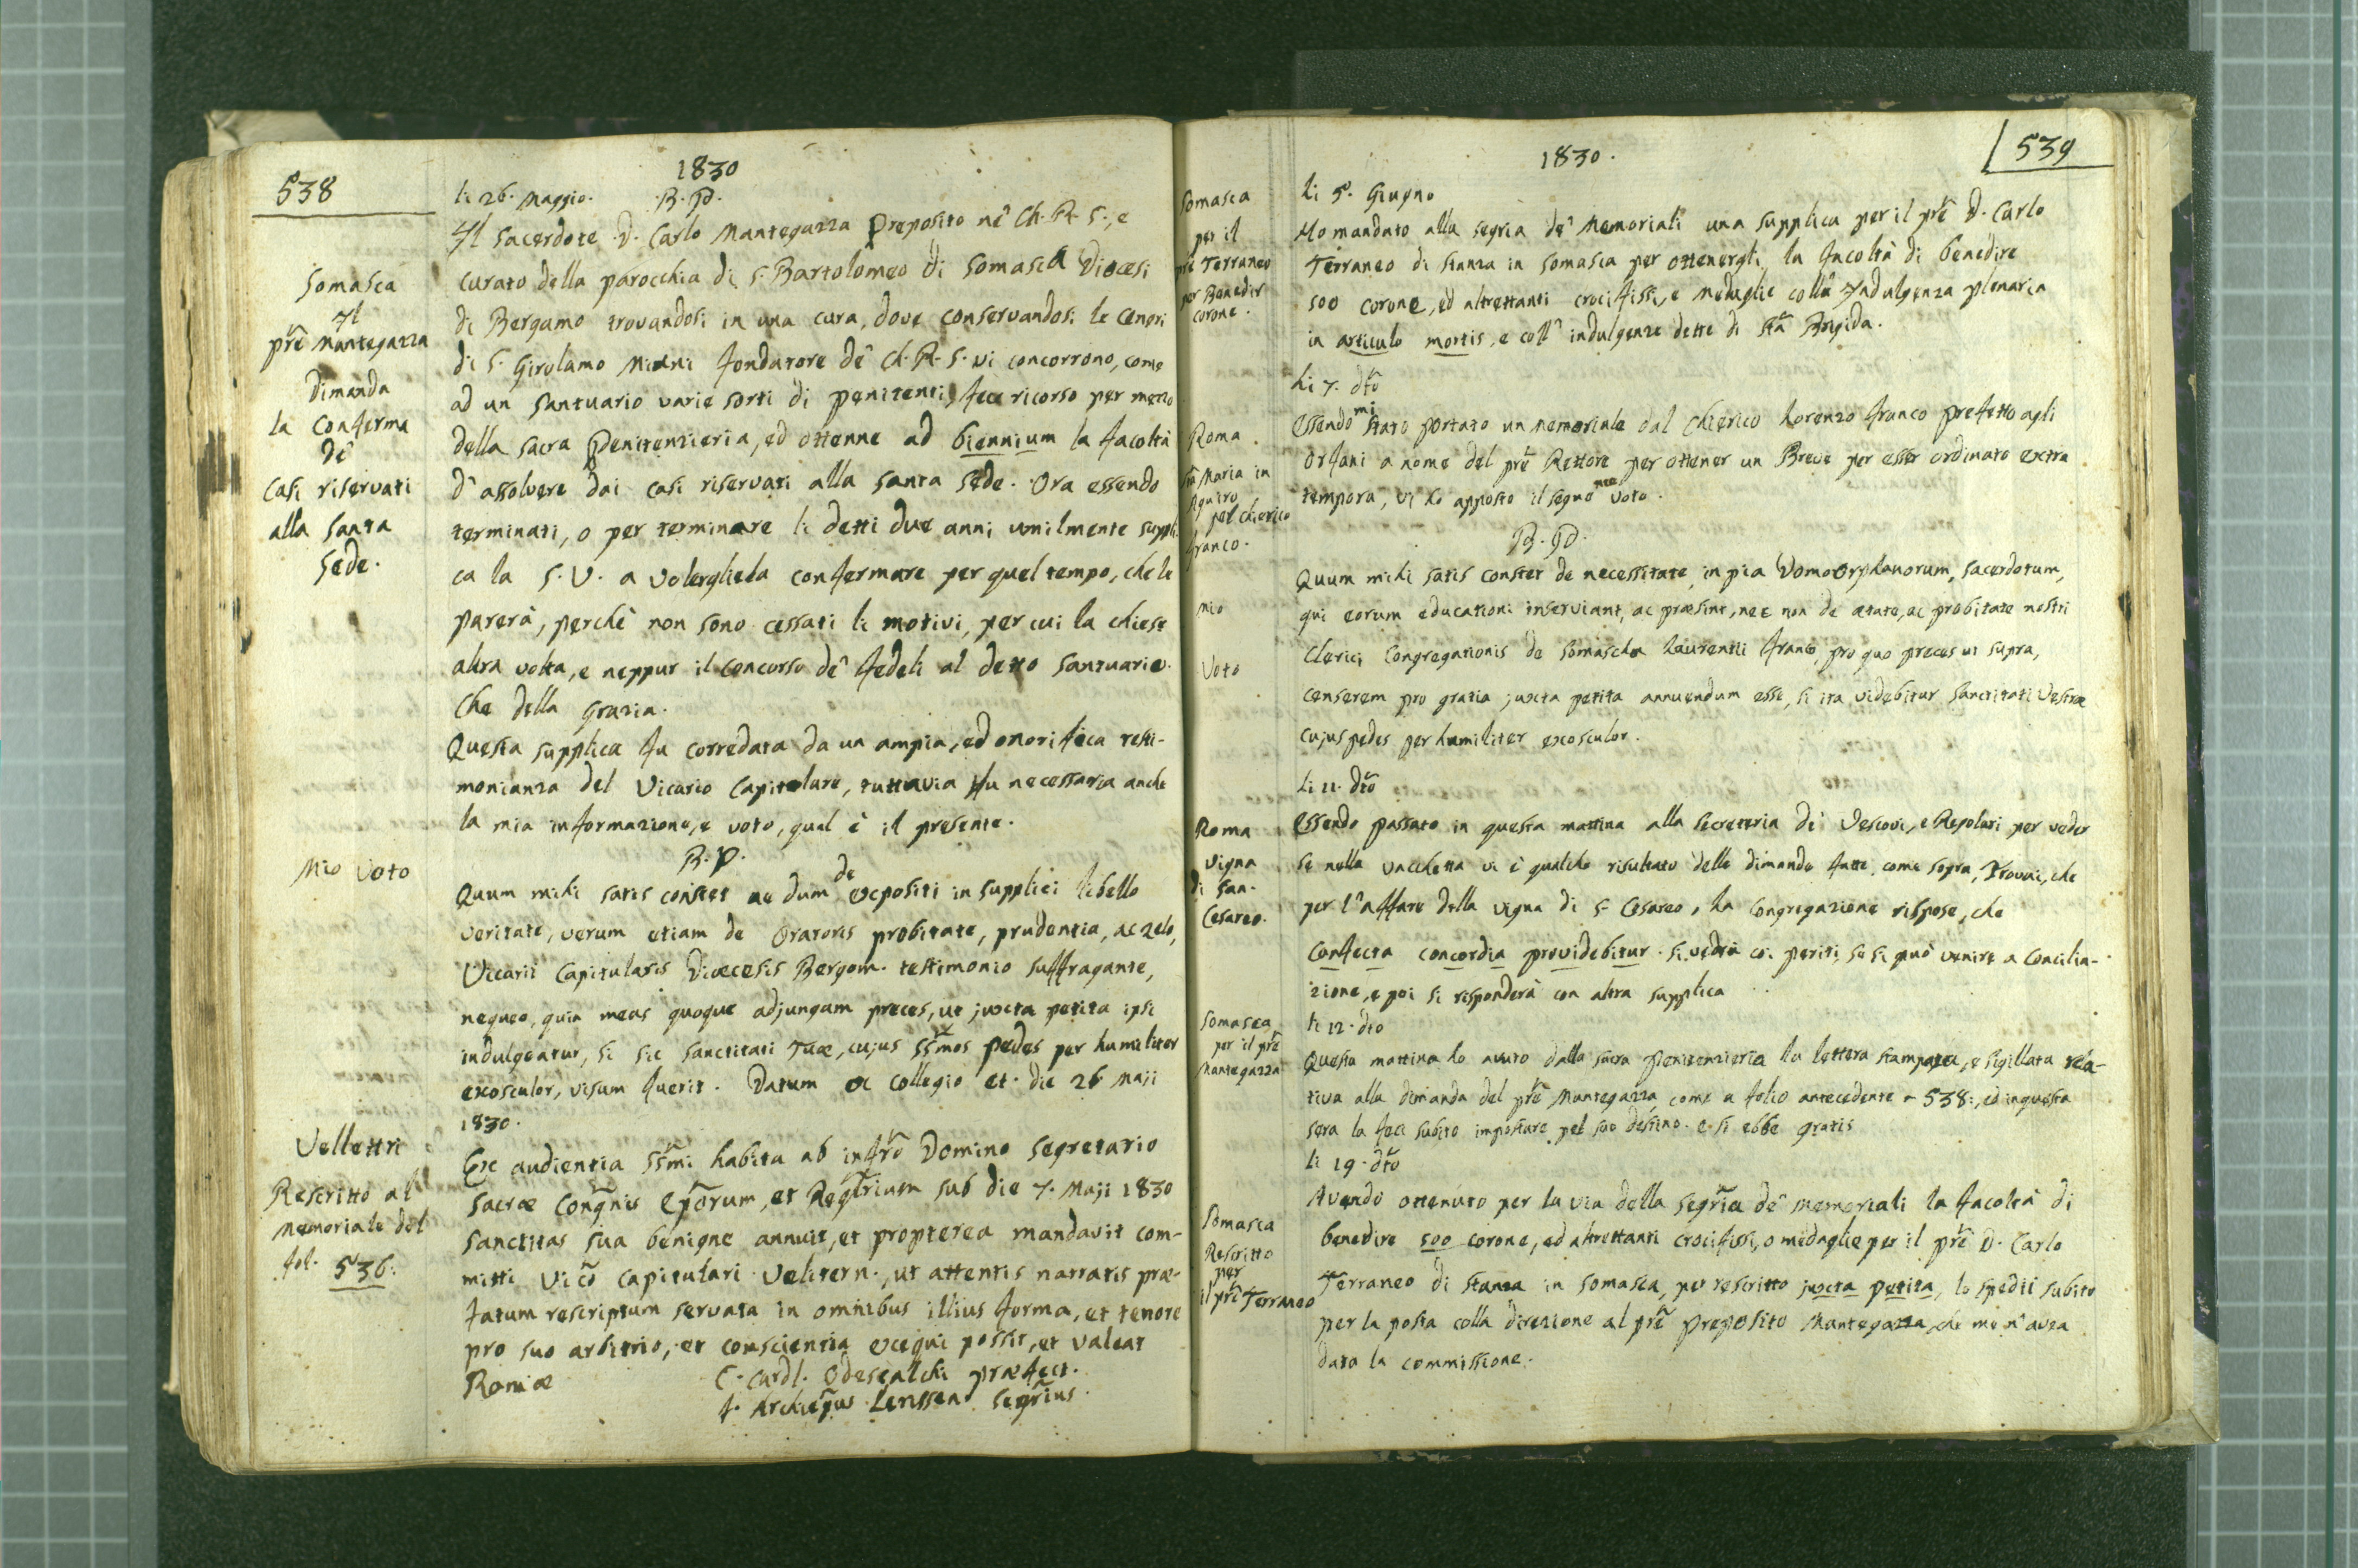 538
1830
li 26. Maggio. B. P.
Il Sacerdote D. Carlo Mantegazza Preposito ne' Ch. R. S., e
curato della parocchia di S. Bartolomeo di Somasca Diocesi
di Bergamo trovandosi in una cura, dove conservandosi le Ceneri
di S. Girolamo Miani fondatore de' Ch. R. S. vi concorrono, come
ad un Santuario varie sorti di penitenti, fece ricorso per mezzo
della sacra Penitenzieria, ed ottenne ad biennium la facoltà
d'assolvere dai casi riservati alla santa Sede. Ora essendo
terminati, o per terminare li detti due anni umilmente suppli
ca la S. V. a volergliela confermare per quel tempo, che le
parerà, perchè non sono cessati li motivi, per cui la chiese
altra volta, e neppur il concorso de' fedeli al detto Santuario.
Che della Grazia.
Questa supplica fu corredata da un ampia, ed onorifica testi-
monianza del Vicario Capitolare, tuttavia fu necessaria anche
la mia informazione, e voto, qual è il presente.
B. P.
Quum mihi satis constet ne dum de expositi in supplici libello
veritate, verum etiam de Oratoris probitate, prudentia, ac zelo,
Vicarii Capitularis Diœcesis Bergom. testimonio suffragante,
nequeo, quin meas quoque adjungam preces, ut juxta petita ipsi
indulgeatur, si sic Sanctitati Tuæ, cujus SSmos pedes per humiliter
exosculor, visum fuerit. Datum ex Collegio et. die 26 Maji
1830.
Ex audientia SSmi habita ab infro Domino Segretario
Sacræ Congnis Eporum, et Reglrium sub die 7. Maji 1830
Sanctitas sua benigne annuit, et propterea mandavit com-
mitti Vico Capitulari Velitern., ut attentis narratis præ-
fatum rescriptum servata in omnibus illius forma, et tenore
pro suo arbitrio, et conscientia exequi possit, et valeat
Romæ C. Cardl. Odescalchi præfect.
f. Archiepus Segrius.
Somasca
Il
pre Mantegazza
Dimanda
la Conferma
de'
Casi riservati
alla Santa
Sede.
Mio Voto
Vellettri
Rescritto al
Memoriale del
fol. 536.
539
1830.
li 5. Giugno
Ho mandato alla segria de' Memoriali una supplica per il pre D. Carlo
Terraneo di stanza in Somasca per ottenergli la facoltà di benedire
500 corone, ed altrettanti crocifissi, e medaglie colla Indulgenza plenaria
in articulo mortis, e coll' indulgenze dette di Sta Brigida.
li 7. dto
Essendo mi stato portato un memoriale dal Chierico Lorenzo Franco prefetto agli
Orfani a nome del pre Rettore per ottener un Breve per esser ordinato extra
tempora, vi ho apposto il segue mio voto.
B. P.
Quum mihi satis constet de necessitate in pia Domo Orphanorum, Sacerdotum,
qui eorum educationi inserviant, ac præsint, nec non de ætate, ac probitate nostri
Clerici Congregationis de Somascha Laurentii Franco, pro quo preces ut supra,
Censerem pro gratia juxta petita annuendum esse, si ita videbitur Sanctitati Vestræ
cujus pedes per humiliter exosculor.
li 11. dto
Essendo passato in questa mattina alla Secreteria de' Vescovi, e Regolari per veder
se nella vacchetta vi è qualche risultato delle dimande fatte, come sopra, trovai, che
per l'affare della vigna di S. Cesareo, la Congregazione rispose, che
Confecta concordia providebitur. Si vedrà coi periti, se si può venire a Concilia-
zione, e poi si risponderà con altra supplica
li 12. dto
Questa mattina ho avuto dalla sacra Penitenzieria la lettera stampata, e sigillata rela-
tiva alla dimanda del pre Mantegazza, come a folio antecedente 538:, ed in questa
sera la feci subito impostare pel suo destino. e si ebbe gratis
li 19. dto
Avendo ottenuto per la via della Segria de' memoriali la facoltà di
benedire 500 corone, ed altrettanti crocifissi, o medaglie per il pre D. Carlo
Terraneo di stanza in Somasca, per rescritto juxta petita, lo spedii subito
per la posta colla direzione al pre preposito Mantegazza, che me n'avea
data la commissione.
Somasca
per il
pre Terraneo
per Benedir
corone.
Roma.
Sta Maria in
Aquiro
pel chierico
Franco.
Mio
Voto
Roma
Vigna
di San-
Cesareo.
Somasca
per il pre
Mantegazza
Somasca
Rescritto
per
il pre Terraneo